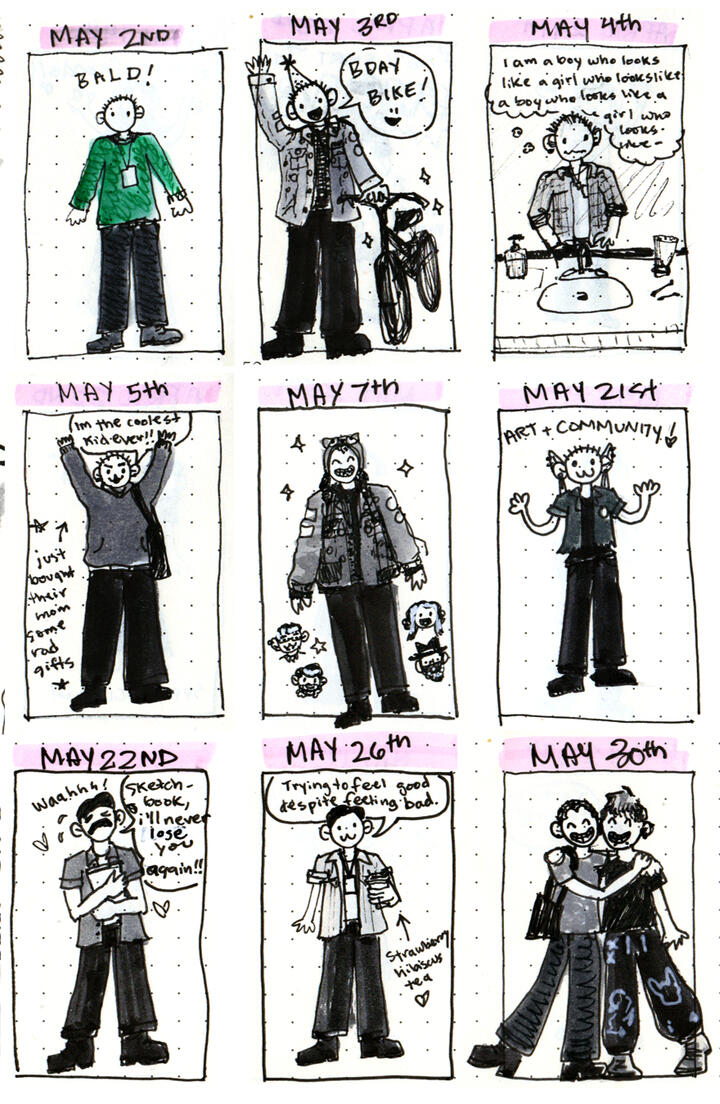 MAY 2ND
BALD!
MAY 3RD
BDAY
BIKE!
MAY 4th
I am a boy who looks
like a girl who looks like
a boy who looks like a
girl who
looks-
like-
MAY 5th
Im the coolest
kid ever!!
just
bought
their
mom
some
rad
gifts
MAY 7th
MAY 21st
ART + COMMUNITY!
MAY 22ND
Waahhh!
Sketch-
book,
i'll never
lose
you
again!!
MAY 26th
Trying to feel good
despite feeling bad.
Strawberry
hibiscus
tea
MAY 30th